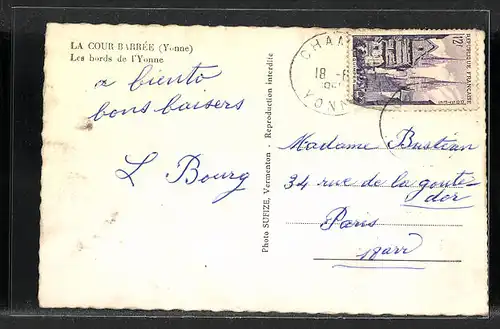 LA COUR BARRÉE (Yonne)
Les bords de l'Yonne
a biento
bons baisers
L Bourg
Photo SUFIZE, Vermenton - Reproduction interdite
CHAM
18 -6
YONN
12F
REPUBLIQUE FRANÇAISE
ROUEN
Madame Bustéan
34 rue de la goute
dor
Paris
18arr